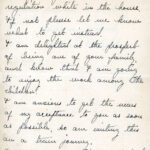 regulation while in the house
& if not please let me know
what to get instead.
I am delighted at the prospect
of being one of your family,
and know that I am going
to enjoy the work among the
children.
I am anxious to get the news
of my acceptance to you as soon
as possible, so am writing this
on a train journey.